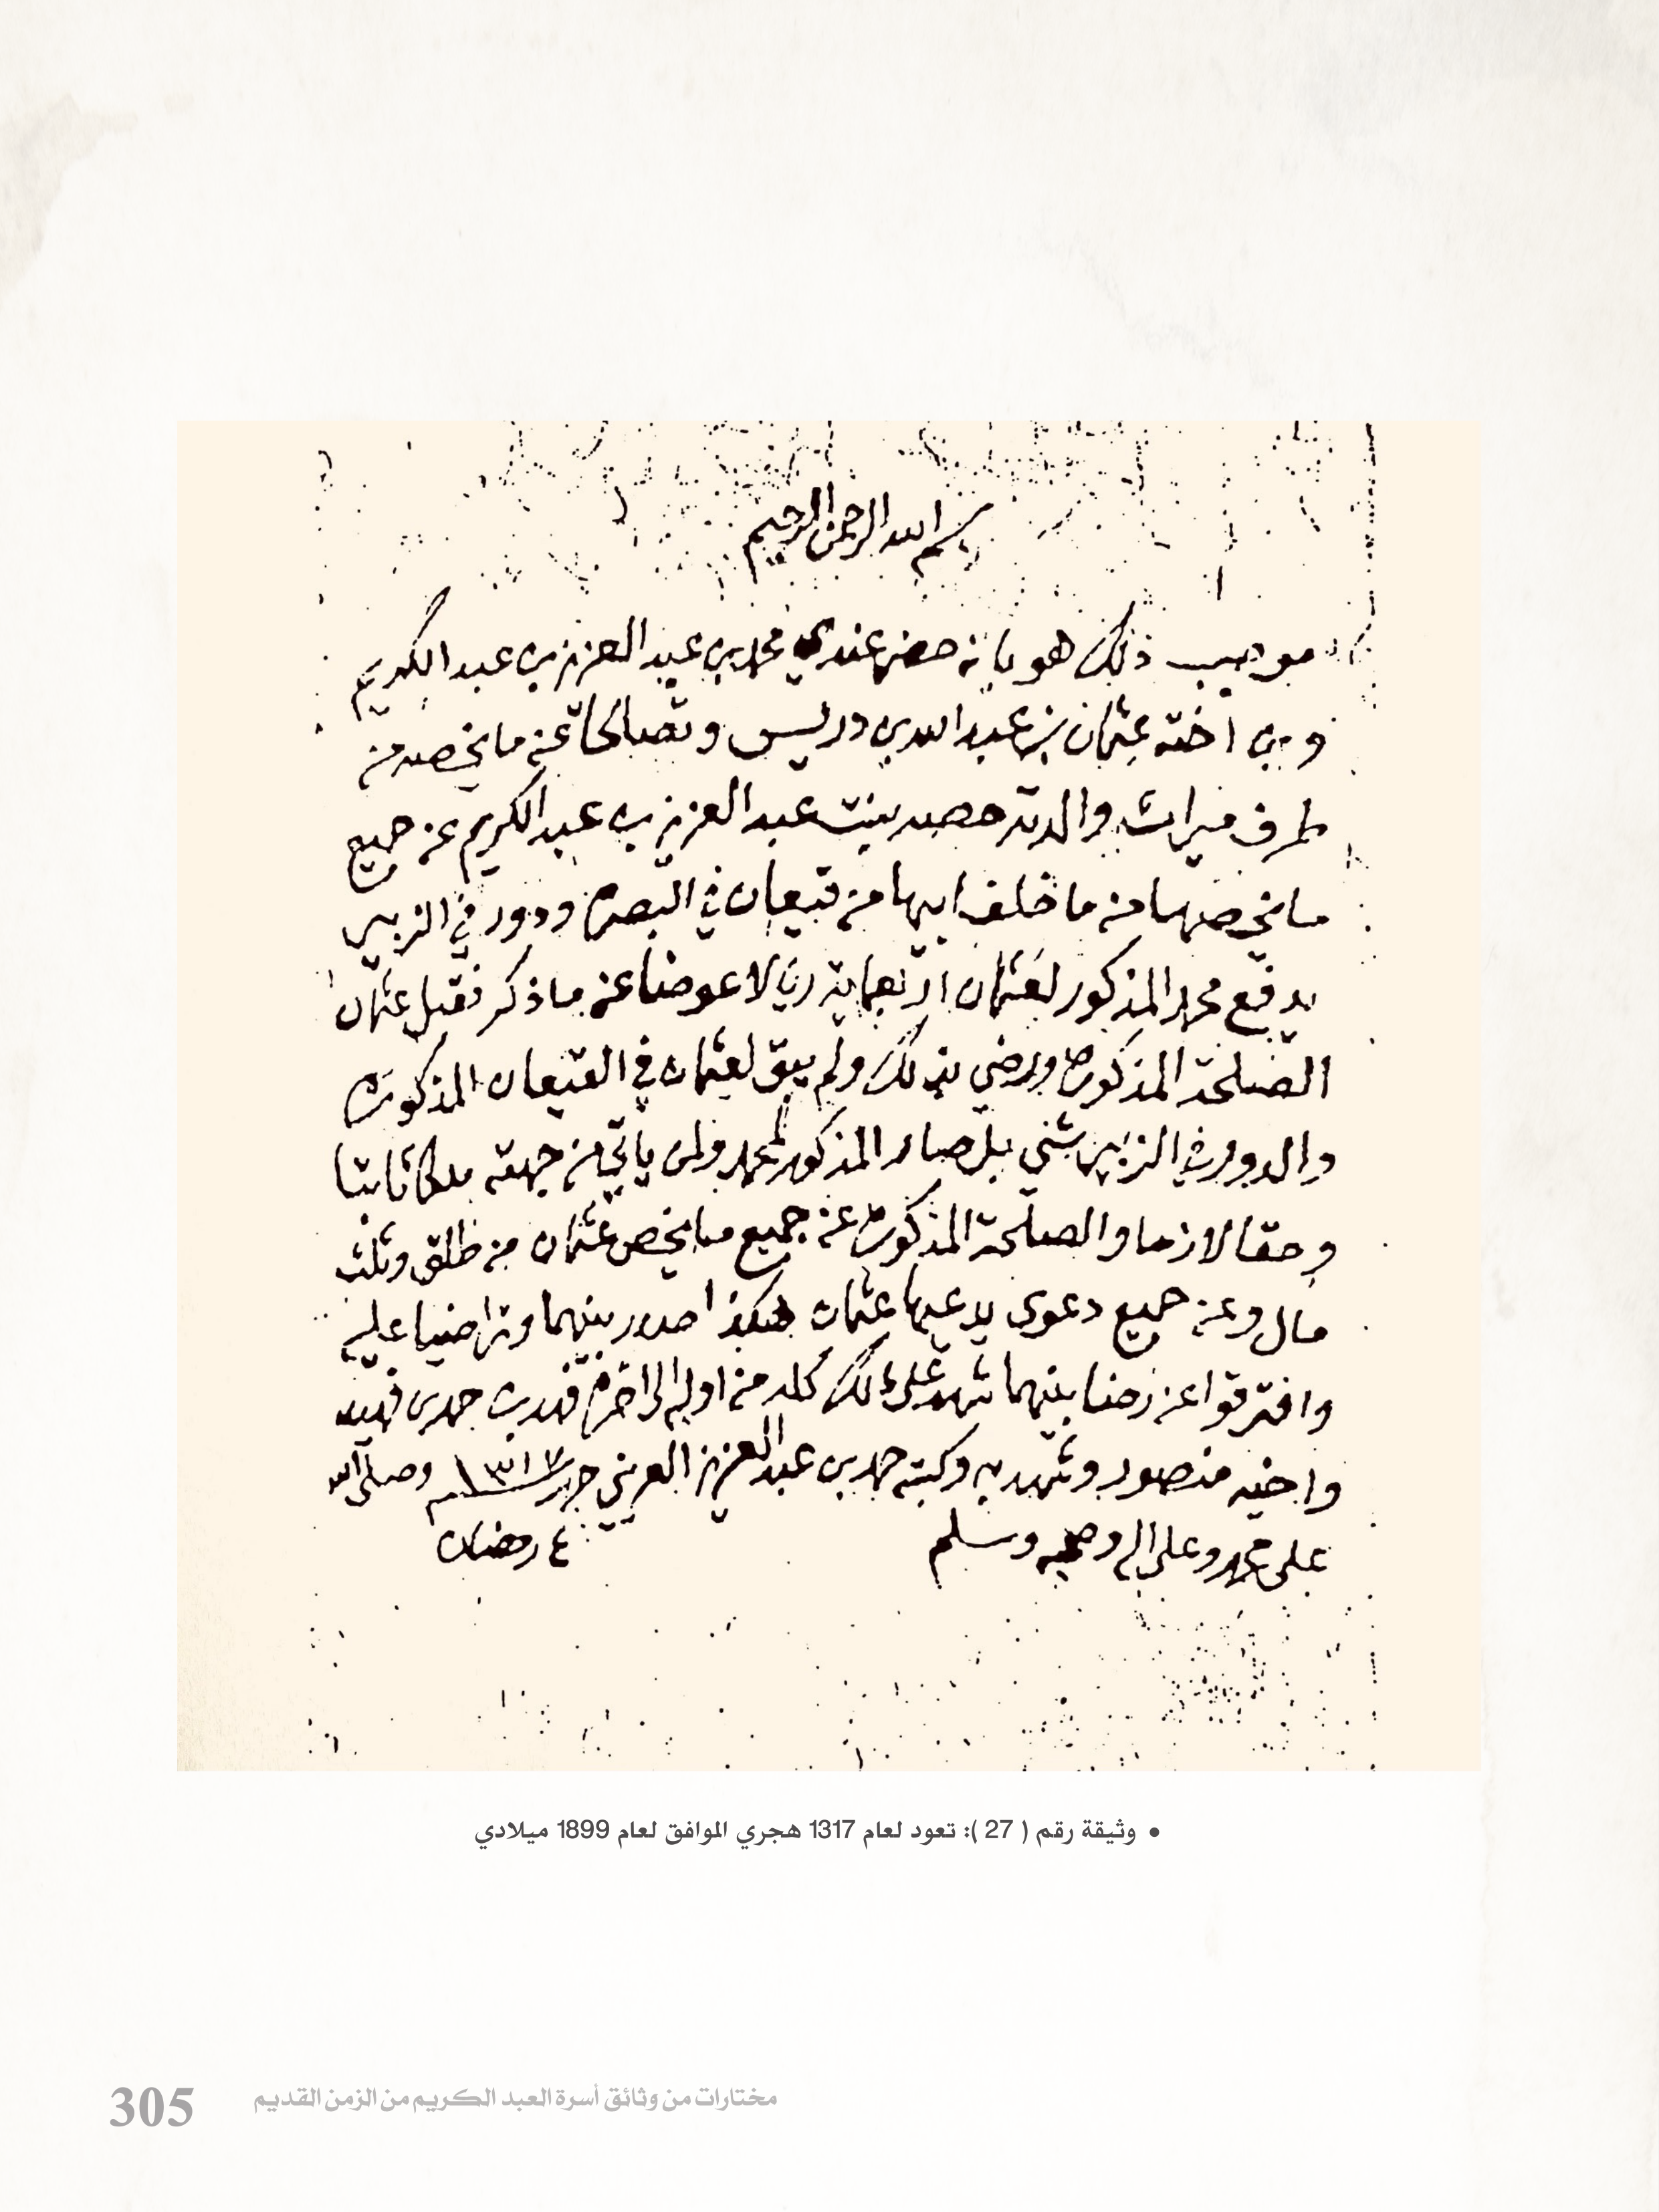 بسم الله الرحمن الرحيم
موجب ذلك هو بانه حضر عندي محمد بن عبد العزيز بن عبد الكريم
وبن اخته عثمان بن عبد الله بن دريس وتصالحا عن ما يخصه من
طرف ميراث والدته حصه بنت عبد العزيز بن عبد الكريم عن جميع
ما يخصها من ما خلف ابيها من قيعان في البصره ودور في الزبير
يدفع محمد المذكور لعثمان اربعماية ريالا عوضا عن ما ذكر فقبل عثمان
الصلحة المذكوره ورضي بذلك ولم يبق لعثمان في القيعان المذكوره
والدور في الزبير شي بل صار المذكور لمحمد ولمن ياتي من جهته ملكا ثابتا
وحقا لازما والصلحة المذكوره عن جميع ما يخص عثمان من طلق وثلث
مال وعن جميع دعوى يدعيها عثمان هكذا صدر بينهما وتراضيا عليه
وافترقوا عن رضا بينهما شهد على ذلك كله من اوله الى اخره فهد بن حمد بن فهيد
واخيه منصور وشهد به وكتبه حمد بن عبد العزيز العريني حرر ١٣١٧ وصلى الله
على محمد وعلى اله وصحبه وسلم ٤ رمضان
• وثيقة رقم ( 27 ): تعود لعام 1317 هجري الموافق لعام 1899 ميلادي
مختارات من وثائق أسرة العبد الكريم من الزمن القديم 305